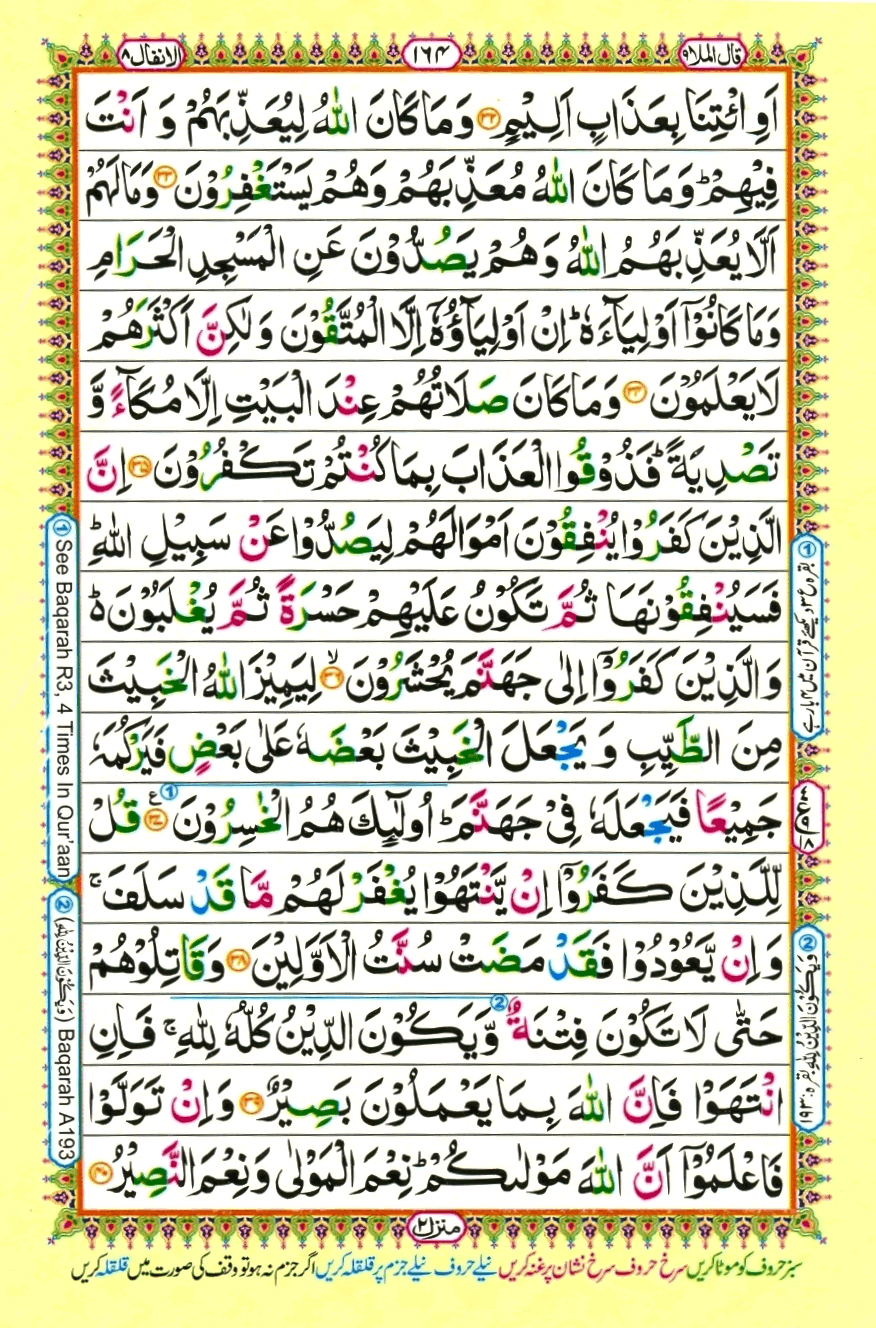 قال الملا ٩
١٦٤
الانفال ٨
اَوِ ائْتِنَا بِعَذَابٍ اَلِيْمٍ ۳۲ وَمَا كَانَ اللّٰهُ لِيُعَذِّبَهُمْ وَ اَنْتَ
فِيْهِمْ ؕ وَمَا كَانَ اللّٰهُ مُعَذِّبَهُمْ وَهُمْ يَسْتَغْفِرُوْنَ ۳۳ وَمَا لَهُمْ
اَلَّا يُعَذِّبَهُمُ اللّٰهُ وَهُمْ يَصُدُّوْنَ عَنِ الْمَسْجِدِ الْحَرَامِ
وَمَا كَانُوْۤا اَوْلِيَآءَهٗ ؕ اِنْ اَوْلِيَآؤُهٗۤ اِلَّا الْمُتَّقُوْنَ وَلٰكِنَّ اَكْثَرَهُمْ
لَا يَعْلَمُوْنَ ۳۴ وَمَا كَانَ صَلَاتُهُمْ عِنْدَ الْبَيْتِ اِلَّا مُكَآءً وَّ
تَصْدِيَةً ؕ فَذُوْقُوا الْعَذَابَ بِمَا كُنْتُمْ تَكْفُرُوْنَ ۳۵ اِنَّ
الَّذِيْنَ كَفَرُوْا يُنْفِقُوْنَ اَمْوَالَهُمْ لِيَصُدُّوْا عَنْ سَبِيْلِ اللّٰهِ ؕ
فَسَيُنْفِقُوْنَهَا ثُمَّ تَكُوْنُ عَلَيْهِمْ حَسْرَةً ثُمَّ يُغْلَبُوْنَ ؕ
وَالَّذِيْنَ كَفَرُوْۤا اِلٰى جَهَنَّمَ يُحْشَرُوْنَ ۳۶ ۙ لِيَمِيْزَ اللّٰهُ الْخَبِيْثَ
مِنَ الطَّيِّبِ وَ يَجْعَلَ الْخَبِيْثَ بَعْضَهٗ عَلٰى بَعْضٍ فَيَرْكُمَهٗ
جَمِيْعًا فَيَجْعَلَهٗ فِيْ جَهَنَّمَ ؕ اُولٰٓئِكَ هُمُ الْخٰسِرُوْنَ ۳۷ ① قُلْ
لِّلَّذِيْنَ كَفَرُوْۤا اِنْ يَّنْتَهُوْا يُغْفَرْ لَهُمْ مَّا قَدْ سَلَفَ ۚ
وَاِنْ يَّعُوْدُوْا فَقَدْ مَضَتْ سُنَّتُ الْاَوَّلِيْنَ ۳۸ وَقَاتِلُوْهُمْ
حَتّٰى لَا تَكُوْنَ فِتْنَةٌ ② وَّيَكُوْنَ الدِّيْنُ كُلُّهٗ لِلّٰهِ ۚ فَاِنِ
انْتَهَوْا فَاِنَّ اللّٰهَ بِمَا يَعْمَلُوْنَ بَصِيْرٌ ۳۹ وَاِنْ تَوَلَّوْا
فَاعْلَمُوْۤا اَنَّ اللّٰهَ مَوْلٰىكُمْ ؕ نِعْمَ الْمَوْلٰى وَنِعْمَ النَّصِيْرُ ۴۰
① See Baqarah R3, 4 Times In Qur'aan
② (وَيَكُوْنَ الدِّيْنُ لِلّٰهِ) Baqarah A193
① بقرہ ع ٣ دیکھئے قرآن میں ٤ بار ہے
② وَيَكُوْنَ الدِّيْنُ لِلّٰهِ بقرہ: ١٩٣
منزل ٢
سبز حروف کو موٹا کریں سرخ حروف سرخ نشان پر غنہ کریں نیلے حروف نیلے جزم پر قلقلہ کریں اگر جزم نہ ہو تو وقف کی صورت میں قلقلہ کریں